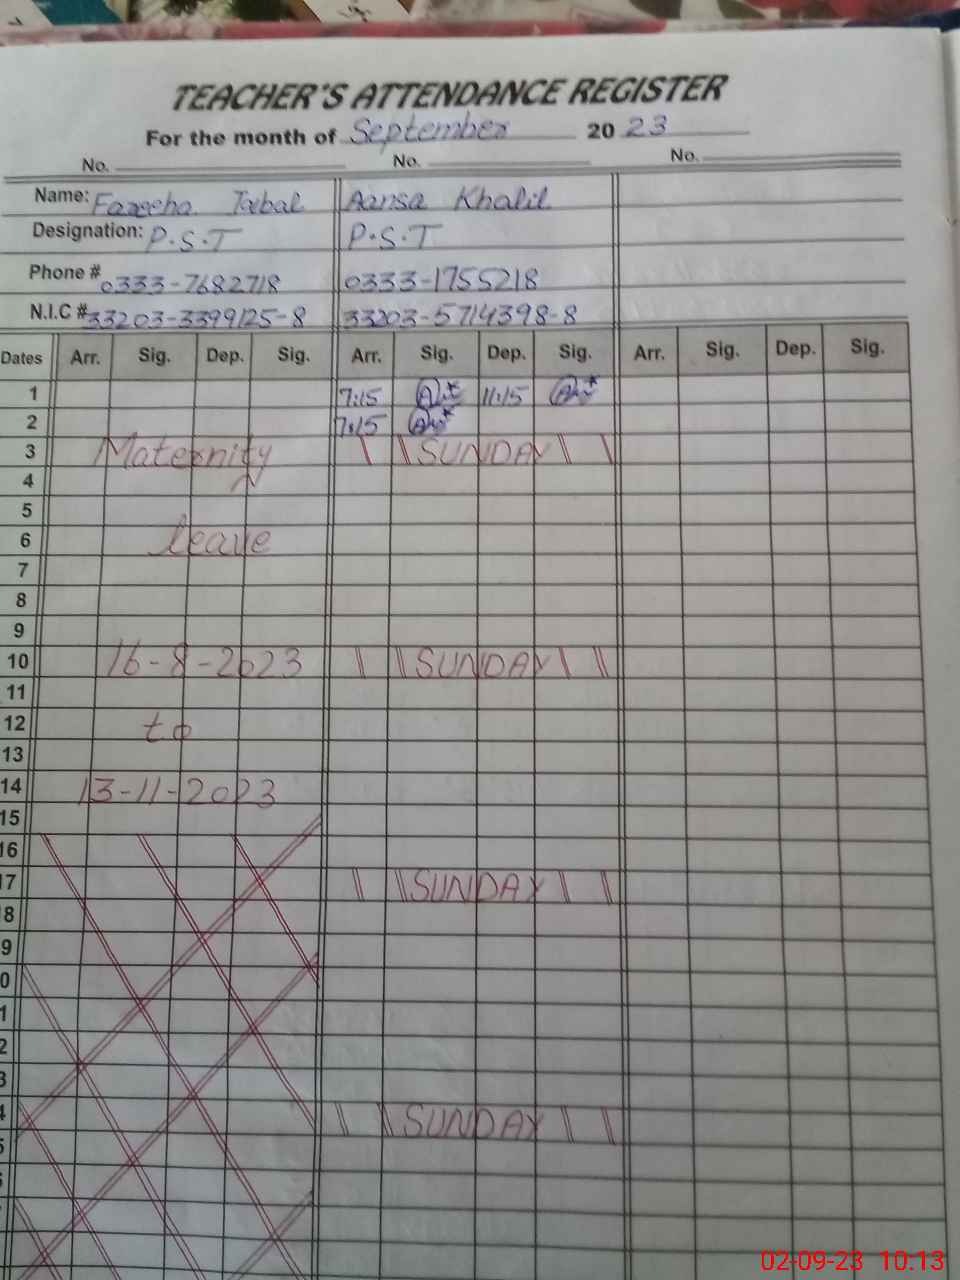 TEACHER'S ATTENDANCE REGISTER
For the month of September 2023
No. No. No.
Name: Fareeha Iqbal Aansa Khalil
Designation: P.S.T P.S.T
Phone # 0333-7682718 0333-1755218
N.I.C # 33203-3399125-8 33203-5714398-8
Dates Arr. Sig. Dep. Sig. Arr. Sig. Dep. Sig. Arr. Sig. Dep. Sig.
1 7:15 11:15
2 7:15
3 Maternity SUNDAY
4
5
6 leave
7
8
9
10 16-8-2023 SUNDAY
11
12 to
13
14 13-11-2023
15
16
17 SUNDAY
8
9
0
1
2
3
4 SUNDAY
5
02-09-23 10:13